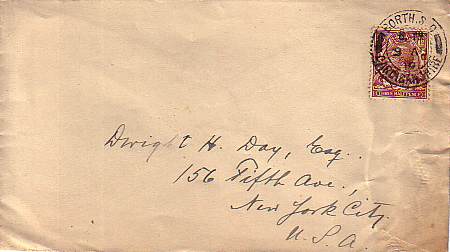 Dwight H. Day, Esq.
156 Fifth Ave.,
New York City.
U. S. A.